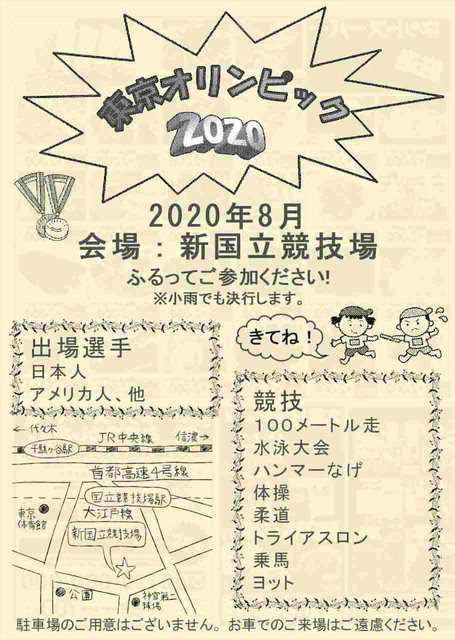 東京オリンピック
2020
2020年8月
会場：新国立競技場
ふるってご参加ください!
※小雨でも決行します。
きてね！
出場選手
日本人
アメリカ人、他
競技
100メートル走
水泳大会
ハンマーなげ
体操
柔道
トライアスロン
乗馬
ヨット
← 代々木
JR中央線
信濃→
千駄ヶ谷駅
首都高速4号線
国立競技場駅
大江戸線
東京体育館
新国立競技場
公園
神宮第二球場
駐車場のご用意はございません。お車でのご来場はご遠慮ください。